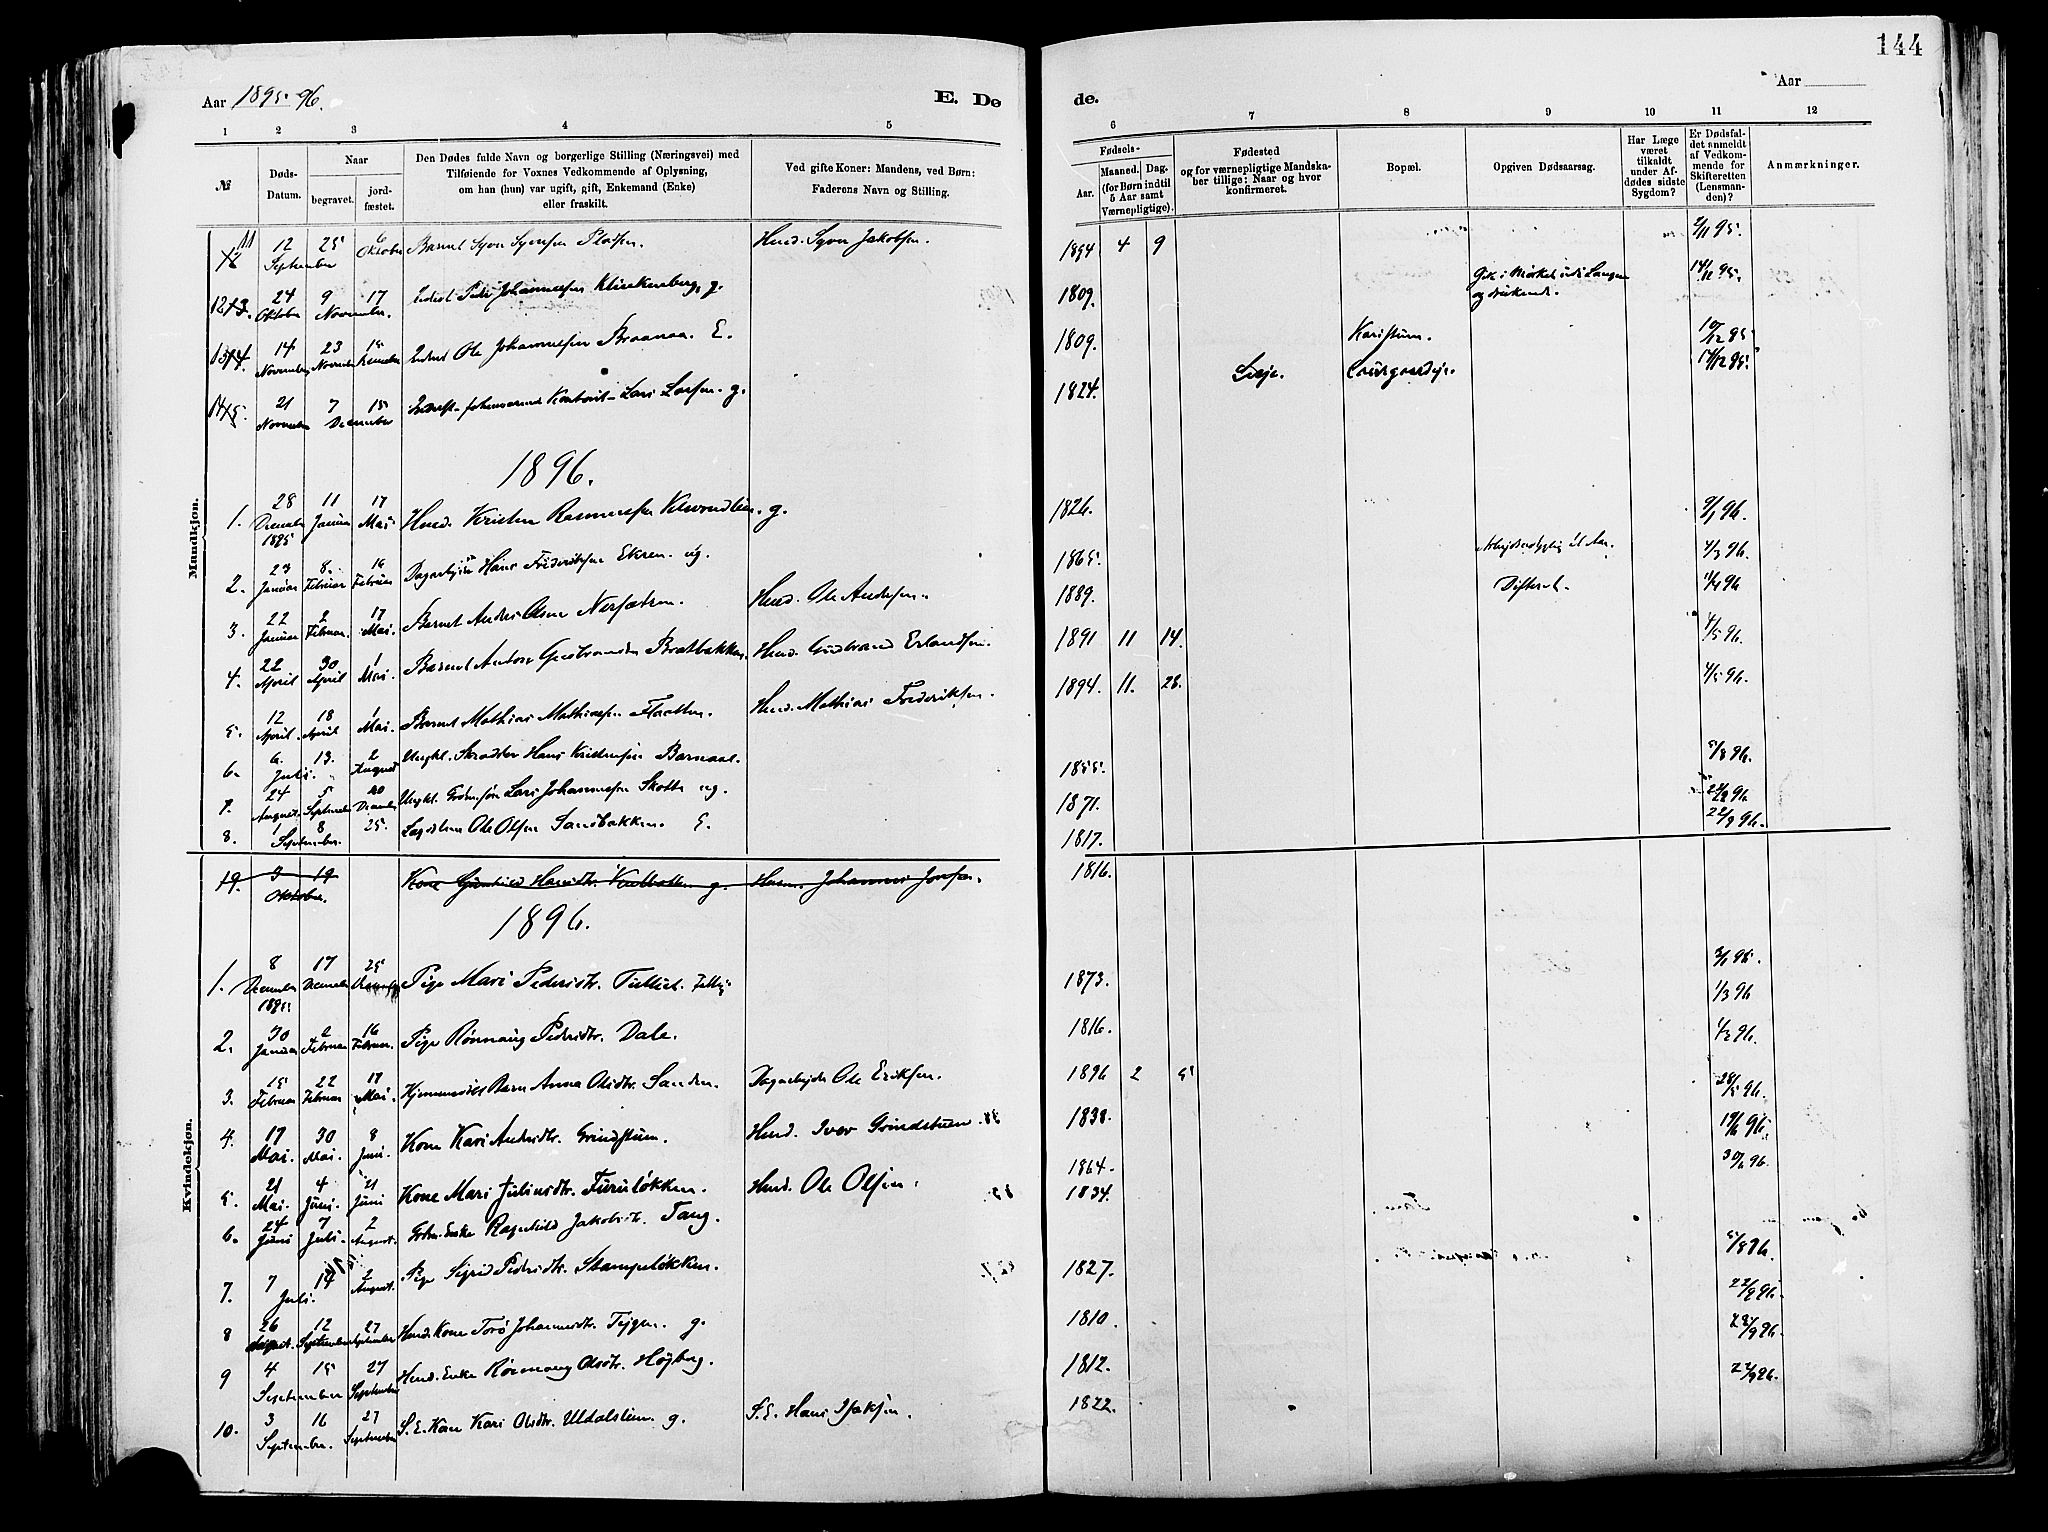 144
Aar 1895-96.
E. Dø
de.
Aar
1 2 3 4 5 6 7 8 9 10 11 12
№
Døds-Datum.
Naar
begravet.
jord-fæstet.
Den Dødes fulde Navn og borgerlige Stilling (Næringsvei) med
Tilføiende for Voxnes Vedkommende af Oplysning,
om han (hun) var ugift, gift, Enkemand (Enke)
eller fraskilt.
Ved gifte Koner: Mandens, ved Børn:
Faderens Navn og Stilling.
Fødsels-
Aar.
Maaned. Dag.
(for Børn indtil
5 Aar samt
Værnepligtige).
Fødested
og for værnepligtige Mandska-
ber tillige: Naar og hvor
konfirmeret.
Bopæl.
Opgiven Dødsaarsag.
Har Læge
været
tilkaldt
under Af-
dødes sidste
Sygdom?
Er Dødsfal-
det anmeldt
af Vedkom-
mende for
Skifteretten
(Lensman-
den)?
Anmærkninger.
Mandkjøn.
11 12 September 25 6 Oktober Barnet Syver Syversen Pladsen. Huusd. Syver Jakobsen. 1894 4 9 2/11 95.
12 24 Oktober 9 November 17 Inderst Peder Johannesen Klinkenberg, g. 1809. og druknede. 14/12 95.
13 14 November 23 November 15 Inderst Ole Johannesen Braanaa. E. 1809. Karistuen. 10/12 95
14 21 November 7 December 15 Lars Larsen. g. 1824. Lesje. 14/12 95.
1896.
1. 28 December 1895 11 Januar 17 Mai Huusd. Kristen Rasmussen g. 1826. 9/1 96.
2. 23 Januar 8. Februar 16 Februar Dagarbejder Hans Frederiksen Ekren. ug. 1865. 4/3 96.
3. 22 Januar 2 Februar. 17 Mai. Barnet Anders Olsen Nersætren. Huusd. Ole Andersen. 1889. Difterit. 11/4 96
4. 22 April 30 April 1 Mai. Barnet Anton Gudbrandsen Bratbakken. Huusd. Gudbrand Erlandsen. 1891 11 14. 4/5 96.
5. 12 April. 18 April 1 Mai. Barnet Mathias Mathiasen Flaatten. Huusd. Mathias Frederiksen. 1894. 11. 28. 4/5 96.
6. 6. Juli. 13. 2 August Ungkl. Skrædder Hans Kristensen Barnaal. 1855. 5/8 96.
7. 24 August. 5 September 20 December Ungkl. Lars Johannesen Skotte ug. 1871.
8. 1 September. 8 25. Ole Olsen Sandbakken. E. 1817. 22/9 96.
Kvindekjøn.
19. 3 19 Oktober. Kone Gunhild Hansdtr. g. Johannes Jonsen. 1816.
1896.
1. 8 December 1895. 17 December 25 Pige Mari Pedersdtr. 1873. 3/1 96.
2. 30 Januar 2 Februar 16 Februar. Pige Rønnaug Pedersdtr. Dale. 1816. 1/3 96
3. 15 Februar 22 Februar 17 Mai. Hjemmedøbt Barn Anna Olsdtr. Sanden. Dagarbejder Ole Eriksen. 1896 2 5 4/3 96.
4. 17 Mai. 30 Mai. 8 Juni. Kone Kari Andersdtr. Grindstuen. Huusd. Iver Grindstuen. 1838. 28/5 96.
5. 21 Mai. 4 Juni. 21 Juni Kone Mari Juliusdtr. Furuløkken. Huusd. Ole Olsen. 1864. 19/6 96.
6. 24 Juni 7 Juli. 2 August. Enke Ragnhild Jakobsdtr. Tang. 1834. 30/6 96.
7. 7 Juli. 14 2 August. Pige Sigrid Pedersdtr. Stampeløkken. 1827. 5/8 96.
8 26 August. 12 September 27 September Huusd. Kone Torø Johannesdtr. g. 1810. 22/9 96.
9 4 September 15 27 September Huusd. Enke Rønnaug Olsdtr. Højberg. 1812. 22/9 96.
10. 3 September. 16 27 September S. E. Kone Kari Olsdtr. Uldalslien. g. S. E. Hans Isaksen. 1822. 22/9 96.